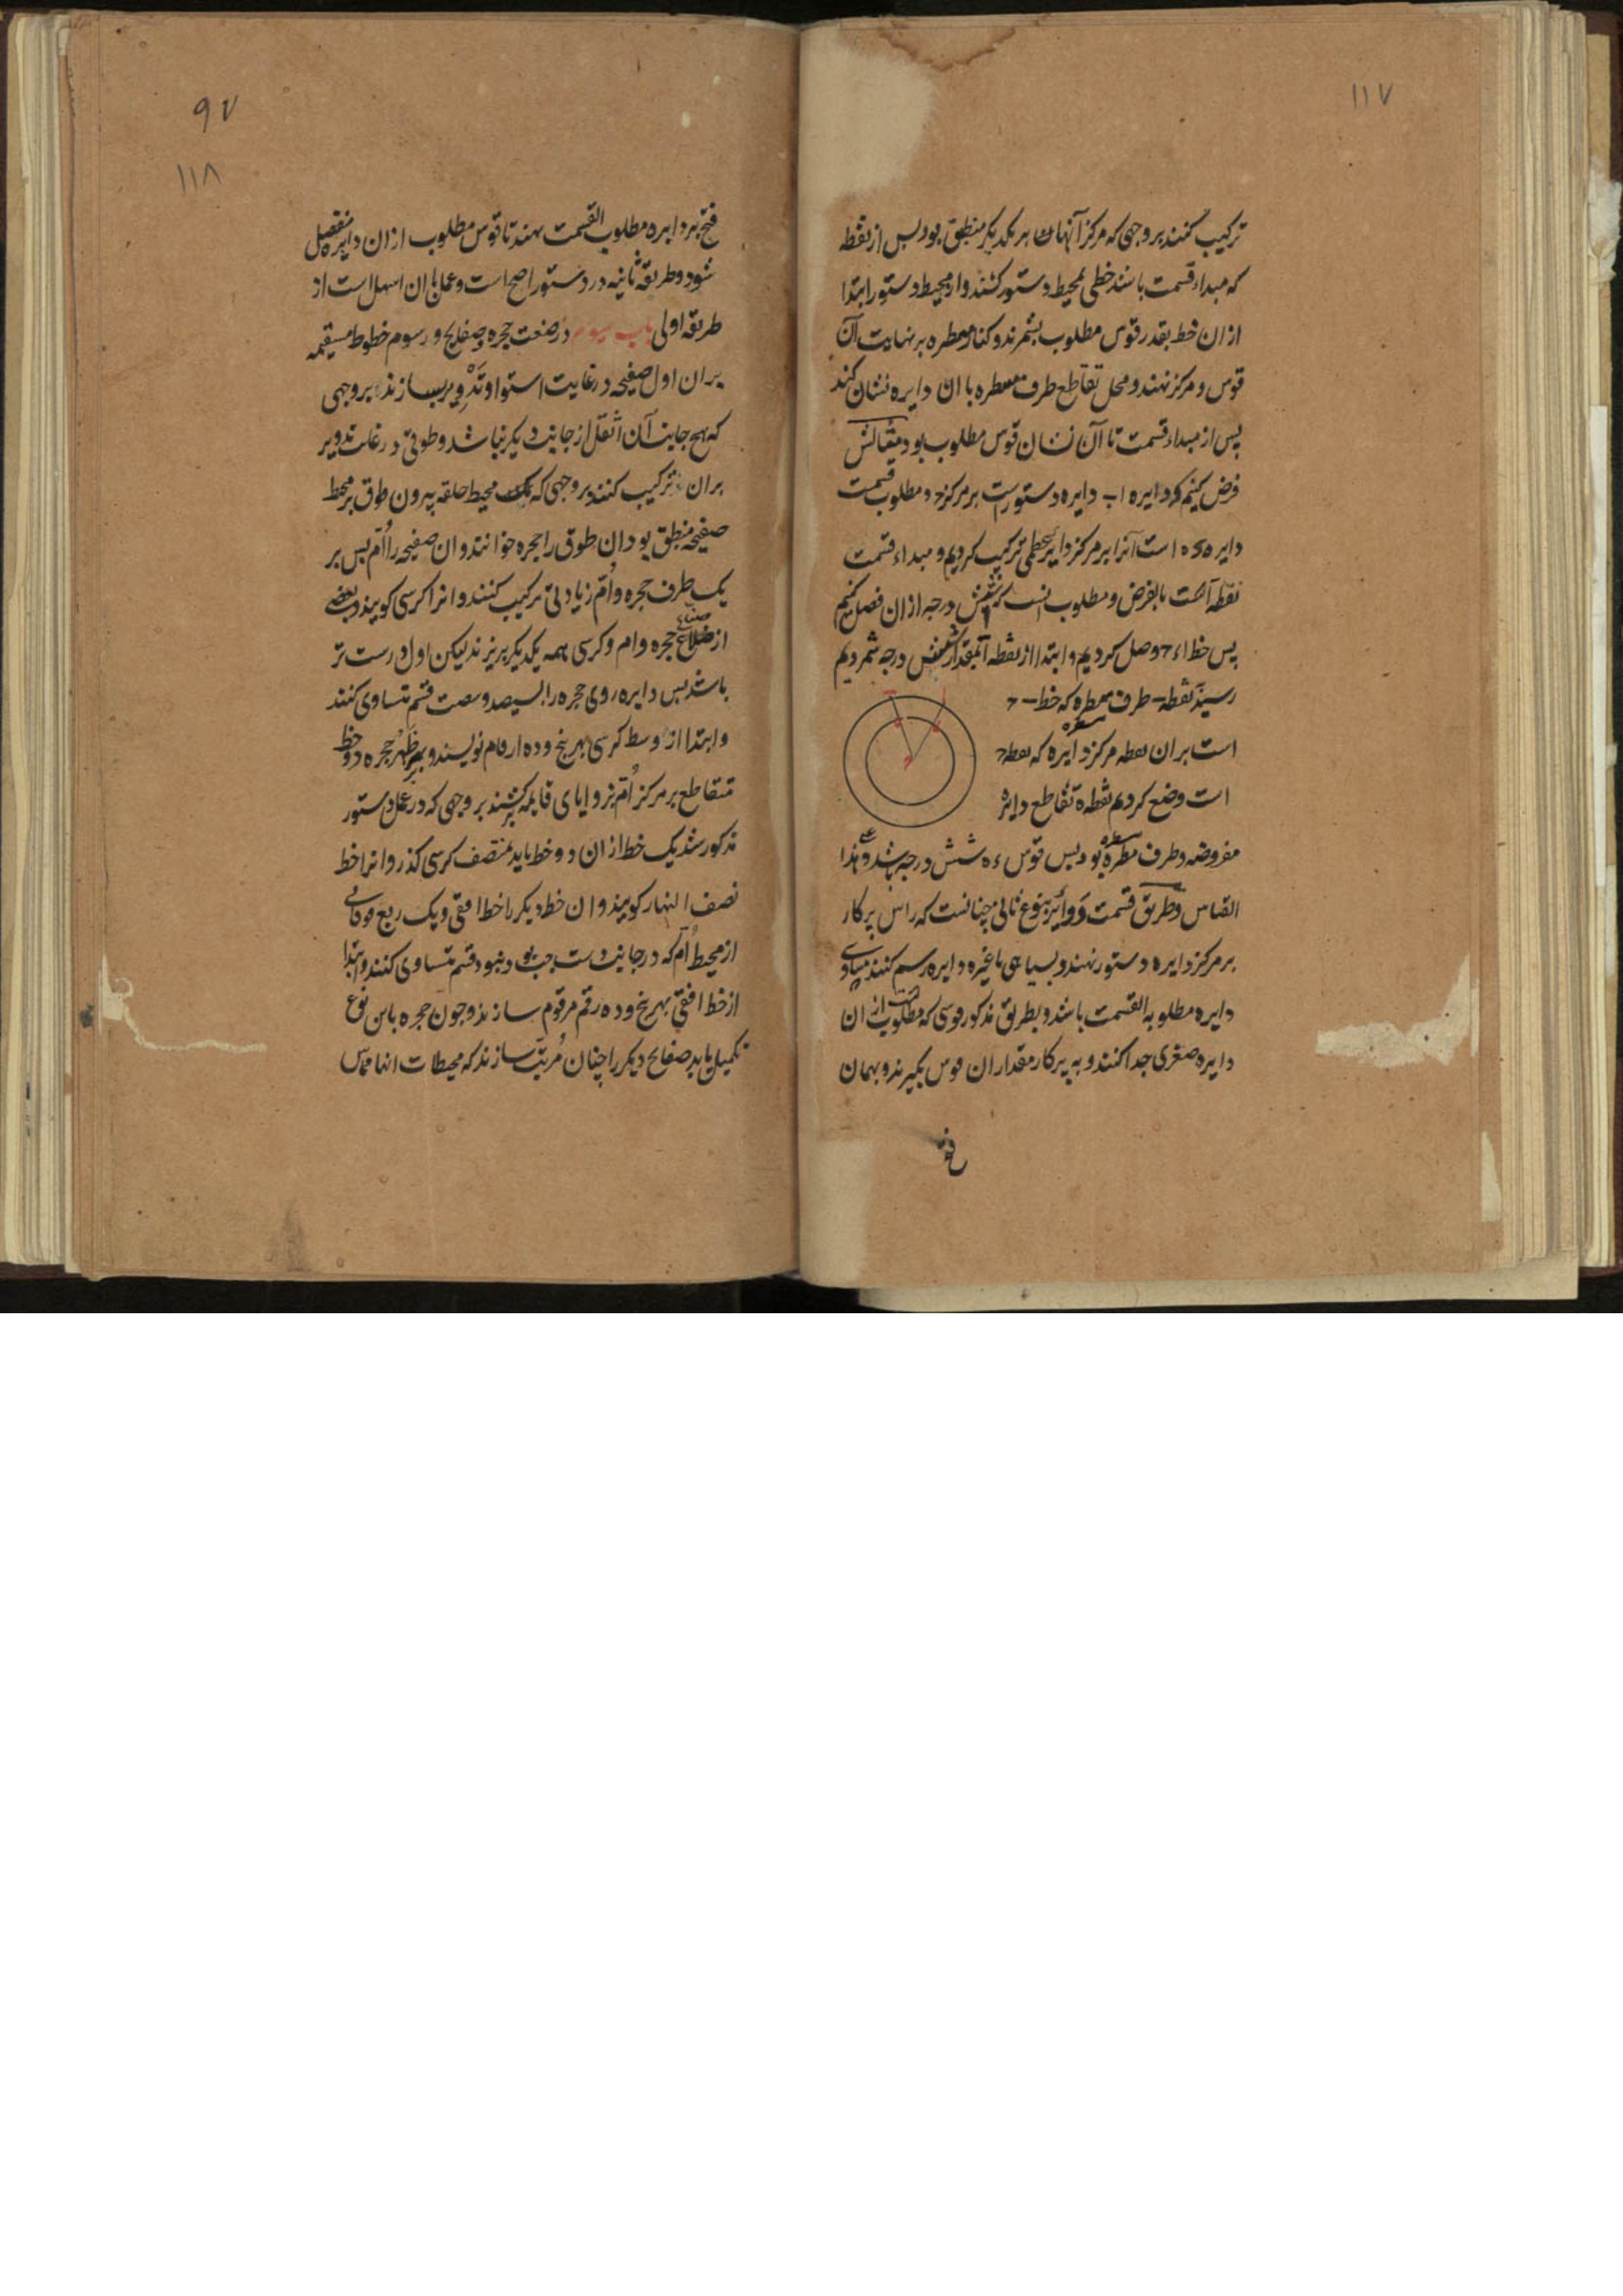 ۱۱۷
ترکیب کنند بر وجهی که مرکز آنها بر یکدیگر منطبق بود پس از نقطه
که مبداء قسمت باشد خطی بمحیط دستور کشند و از محیط دستور ابتدا
از ان خط بقدر قوس مطلوب بشمرند و کنار مسطره بر نهایت آن
قوس و مرکز نهند و محل تقاطع طرف مسطره با ان دایره نشان کند
پس از مبداء قسمت تا آن نشان قوس مطلوب بود مثالش
فرض کنیم که دایره ا ب دایره دستورست بر مرکز ح و مطلوب قسمت
دایره ء ه است آنرا بر مرکز دایره عظمی ترکیب کردیم و مبداء قسمت
نقطه است بالفرض و مطلوب انست که شش درجه از ان فصل کنیم
پس خط ا ء ح وصل کردیم و ابتدا از نقطه آ بمقدار شش درجه شمردیم
رسید نقطه ب طرف مسطره که خط ب ح
است بران نقطه مرکز دایره که نقطه ح
است وضع کردیم نقطه ه تقاطع دایره
مفروضه و طرف مسطره بود پس قوس ء ه شش درجه باشد و علی هذا
القیاس و طریق قسمت دوایر بنوع ثانی چنانست که راس پرکار
بر مرکز دایره دستور نهند و بسیاهی یا غیره دایره رسم کنند مساوی
دایره مطلوبه القسمت باشد و بطریق مذکور قوسی که مطلوبست از ان
دایره صغری جدا کنند و به پرکار مقدار ان قوس بگیرند و بهمان
فتح
۹۷
۱۱۸
فتح بر دایره مطلوب القسمت نهند تا قوس مطلوب از ان دایره منفصل
شود و طریقه ثانیه در دستور اصح است و عمل بان اسهل است از
طریقه اولی باب سیوم در صنعت حجره و صفایح و رسوم خطوط مستقیمه
بران اول صفیحه در غایت استوا و تدویر بسازند بر وجهی
که هیچ جانب آن اثقل از جانب دیگر نباشد و طوقی در غایت تدویر
بران ترکیب کنند بر وجهی که محیط حلقه بیرون طوق بر محیط
صفیحه منطبق بود ان طوق را حجره خوانند و ان صفیحه را اُم پس بر
یک طرف حجره و اُم زیادتی ترکیب کنند و انرا کرسی کویند و بعضی
از صناع حجره و ام و کرسی همه یکدیگر بریزند لیکن اول درست تر
باشد پس دایره روی حجره را بسیصد و شصت قسم متساوی کنند
و ابتدا از وسط کرسی بهر پنج و ده ارقام نویسند و بر ظَهر حجره دو خط
متقاطع بر مرکز اُم بزوایای قایمه کشند بر وجهی که در عمل دستور
مذکور شد یک خط از ان دو خط باید بمنتصف کرسی گذرد و انرا خط
نصف النهار کویند و ان خط دیگر را خط افقی و یک ربع فوقانی
از محیط اُم که در جانب دست چپ بود بنود قسم متساوی کنند و ابتدا
از خط افقی بهر پنج و ده رقم مرقوم سازند و چون حجره باین نوع
تکمیل یابد صفایح دیگر را چنان مُرتب سازند که محیطات انها مماس